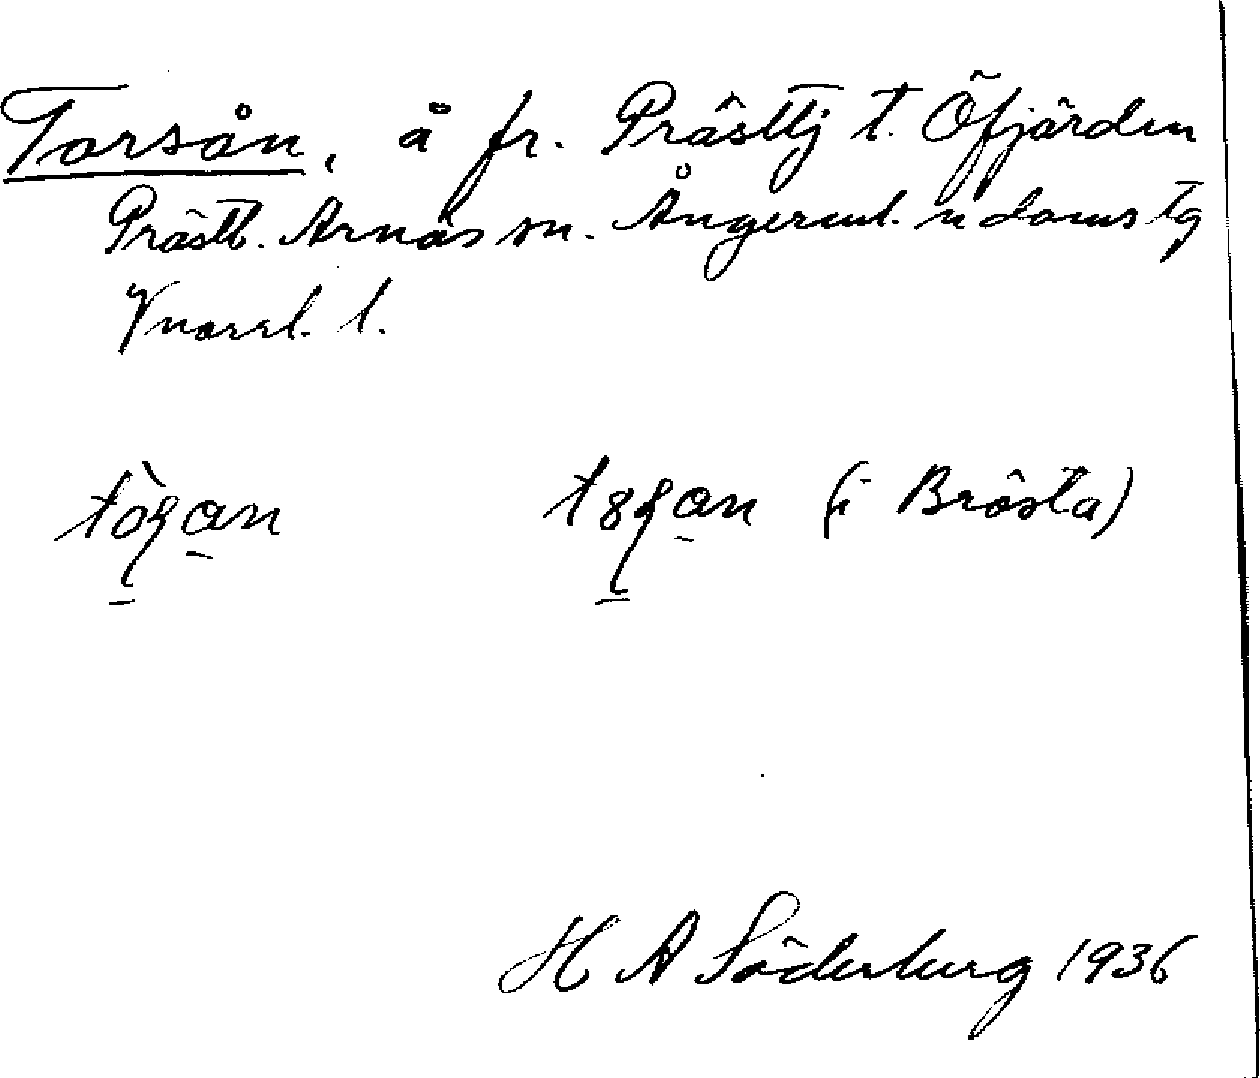 Torsån, å fr. Prästtj t. Öfjärden
Prästb. Arnäs sn. Ångerml. n domstg
Vnorrl. l.
(i Brösta)
H A Söderberg 1936